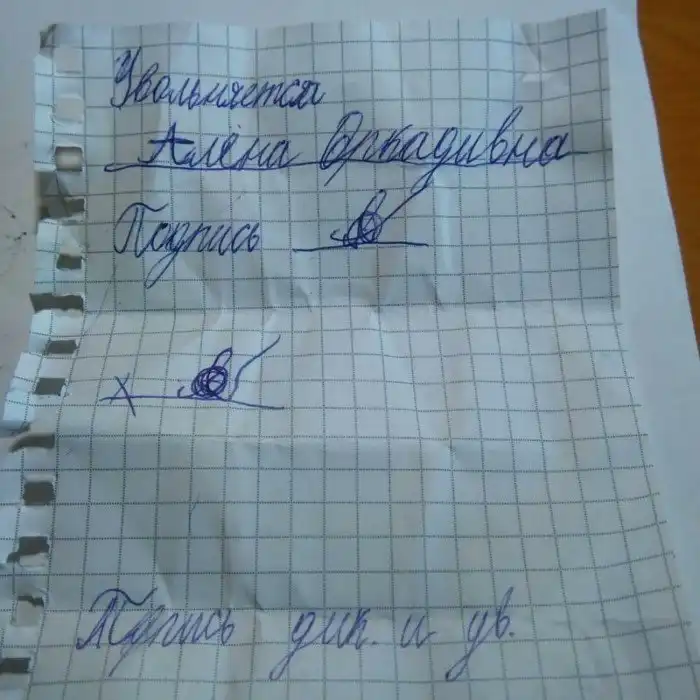 Увольняется
Алёна Оркадивна
Подпись
х
Пдпись дик. и ув.